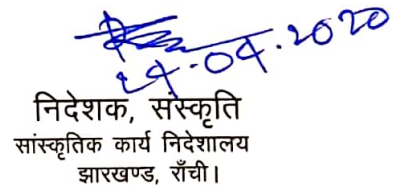 24.04.2020
निदेशक, संस्कृति
सांस्कृतिक कार्य निदेशालय
झारखण्ड, राँची।